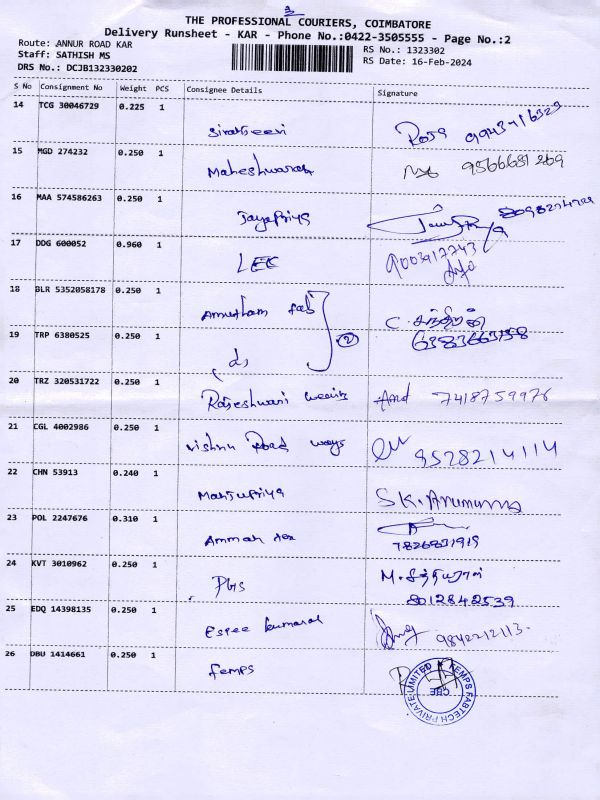 3
THE PROFESSIONAL COURIERS, COIMBATORE
Delivery Runsheet - KAR - Phone No.:0422-3505555 - Page No.:2
Route: ANNUR ROAD KAR
Staff: SATHISH MS
DRS No.: DCJB132330202
RS No.: 1323302
RS Date: 16-Feb-2024
S No Consignment No Weight PCS Consignee Details Signature
14 TCG 30046729 0.225 1
15 MGD 274232 0.250 1 Maheshwaran 9566681269
16 MAA 574586263 0.250 1 Jayapriya
17 DDG 600052 0.960 1 LEE 9003917743
18 BLR 5352058178 0.250 1 Amutham C. சந்திரன்
19 TRP 6380525 0.250 1 (2) 6383663158
20 TRZ 320531722 0.250 1 Rajeshwari 7418759976
21 CGL 4002986 0.250 1 vishnu Road ways 9528214114
22 CHN 53913 0.240 1 Manjupriya S.K.
23 POL 2247676 0.310 1 Amman tex 7826831919
24 KVT 3010962 0.250 1 PGS M.
8012842539
25 EDQ 14398135 0.250 1 Espee kumaran 9842212113
26 DBU 1414661 0.250 1 femps
FEMPS FABTECH PRIVATE LIMITED
CBE